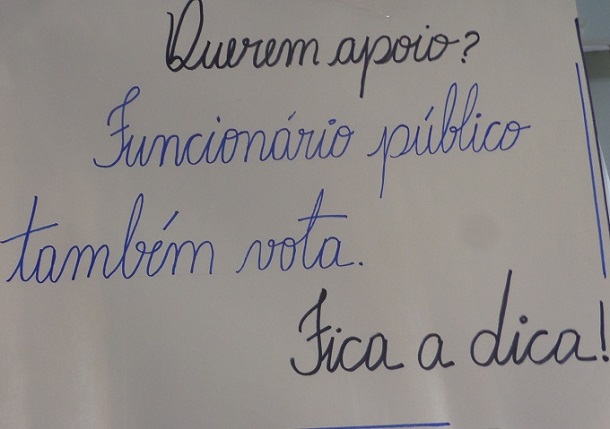 Querem apoio?
Funcionário público
também vota.
Fica a dica!